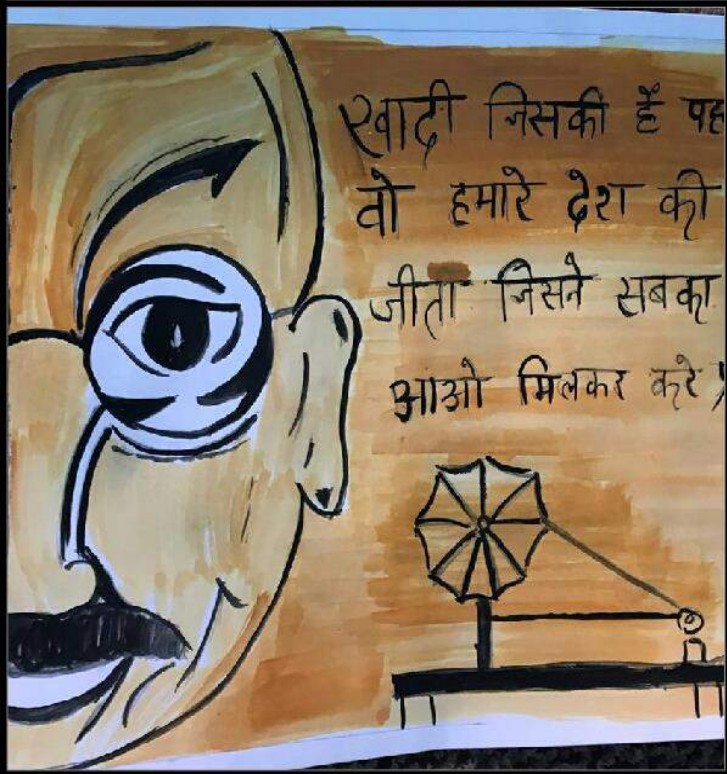 खादी जिसकी है
वो हमारे देश की
जीता जिसने सबका
आओ मिलकर करे